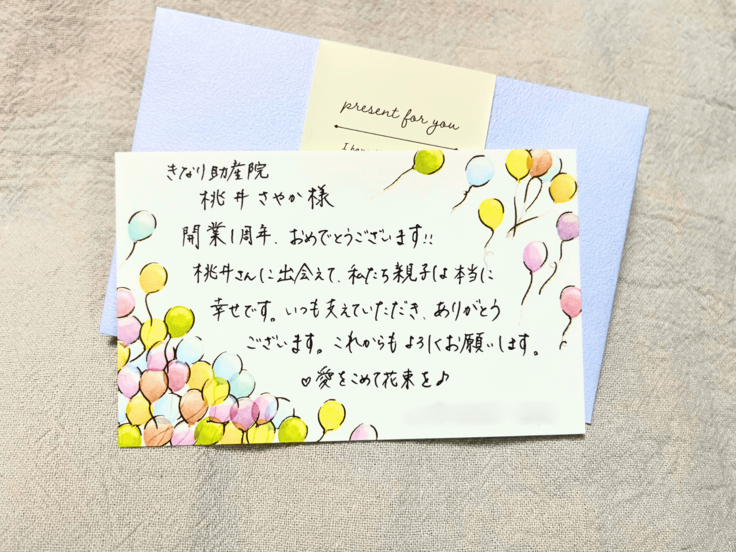 present for you
きなり助産院
桃井さやか様
開業1周年、おめでとうございます!!
桃井さんに出会えて、私たち親子は本当に
幸せです。いつも支えていただき、ありがとう
ございます。これからもよろしくお願いします。
♡愛をこめて花束を♪